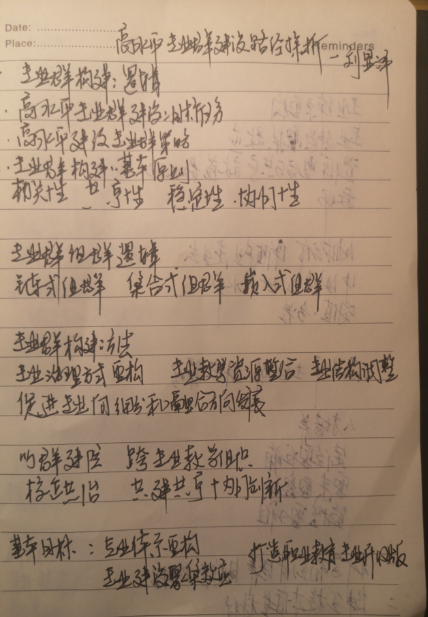 Date:
Place: Reminders
高水平专业群建设路径探析 一刘显泽
· 专业群构建:逻辑
· 高水平专业群建设:目标任务
· 高水平建设专业群策略
· 专业群构建:基本原则
相关性 共享性 稳定性 协同性
专业群组群逻辑
链式组群 集合式组群 嵌入式组群
专业群构建:方法
专业治理方式重构 专业教学资源整合 专业结构调整
促进专业向细分和融合方向发展
以群建院 跨专业教学组织
校企共治 共建共享 协同创新
基本目标:专业体系重构 打造职业教育专业升级版
专业建设聚集效应